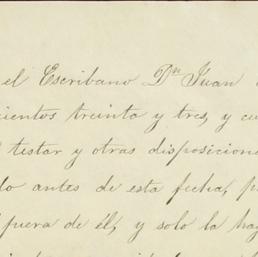 el Escribano Dn Juan
cientos treinta y tres, y cu
testar y otras disposicion
do antes de esta fecha, p
fuera de él, y solo la hag